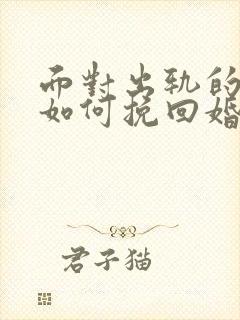 而對出軌的
如何挽回婚
君子猫